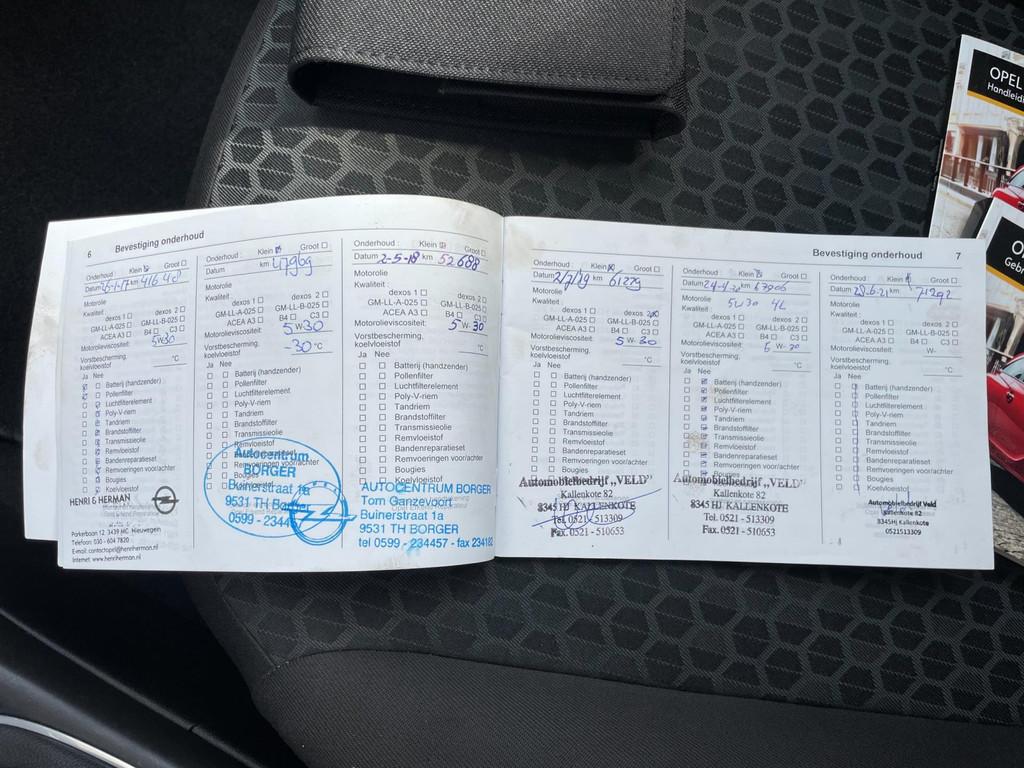 6 Bevestiging onderhoud
Onderhoud : Klein Groot
Datum km 41640
Motorolie
Kwaliteit :
dexos 1 dexos 2
GM-LL-A-025 GM-LL-B-025
ACEA A3 B4 C3
Motorolieviscositeit: 5W30
Vorstbescherming, koelvloeistof °C
Ja Nee
Batterij (handzender)
Pollenfilter
Luchtfilterelement
Poly-V-riem
Tandriem
Brandstoffilter
Transmissieolie
Remvloeistof
Bandenreparatieset
Remvoeringen voor/achter
Bougies
Koelvloeistof
HENRI & HERMAN
Parkerbaan 12 3439 MC Nieuwegen
Telefoon: 030 - 604 7820
E-mail: contactopel@henriherman.nl
Internet: www.henriherman.nl
Onderhoud : Klein Groot
Datum km 47969
Motorolie
Kwaliteit :
dexos 1 dexos 2
GM-LL-A-025 GM-LL-B-025
ACEA A3 B4 C3
Motorolieviscositeit: 5 W 30
Vorstbescherming, koelvloeistof -30 °C
Ja Nee
Batterij (handzender)
Pollenfilter
Luchtfilterelement
Poly-V-riem
Tandriem
Brandstoffilter
Transmissieolie
Remvloeistof
Bandenreparatieset
Remvoeringen voor/achter
Autocentrum
BORGER
Buinerstraat 1a
9531 TH Borger
0599 - 2344
Onderhoud : Klein Groot
Datum 2-5-18 km 52688
Motorolie
Kwaliteit :
dexos 1 dexos 2
GM-LL-A-025 GM-LL-B-025
ACEA A3 B4 C3
Motorolieviscositeit: 5 W 30
Vorstbescherming, koelvloeistof °C
Ja Nee
Batterij (handzender)
Pollenfilter
Luchtfilterelement
Poly-V-riem
Tandriem
Brandstoffilter
Transmissieolie
Remvloeistof
Bandenreparatieset
Remvoeringen voor/achter
Bougies
AUTOCENTRUM BORGER
Tom Ganzevoort
Buinerstraat 1a
9531 TH BORGER
tel 0599 - 234457 - fax 234182
Bevestiging onderhoud 7
Onderhoud : Klein Groot
Datum 2/7/19 km 61279
Motorolie
Kwaliteit :
dexos 1 dexos 2
GM-LL-A-025 GM-LL-B-025
ACEA A3 B4 C3
Motorolieviscositeit: 5 W 30
Vorstbescherming, koelvloeistof °C
Ja Nee
Batterij (handzender)
Pollenfilter
Luchtfilterelement
Poly-V-riem
Tandriem
Brandstoffilter
Transmissieolie
Remvloeistof
Bandenreparatieset
Remvoeringen voor/achter
Bougies
Automobielbedrijf „VELD"
Kallenkote 82
8345 HJ KALLENKOTE
Tel. 0521 - 513309
Fax. 0521 - 510653
Onderhoud : Klein Groot
Datum km 67906
Motorolie 5W30 4L
Kwaliteit :
dexos 1 dexos 2
GM-LL-A-025 GM-LL-B-025
ACEA A3 B4 C3
Motorolieviscositeit: W- 30
Vorstbescherming, koelvloeistof °C
Ja Nee
Batterij (handzender)
Pollenfilter
Luchtfilterelement
Poly-V-riem
Tandriem
Brandstoffilter
Transmissieolie
Remvloeistof
Bandenreparatieset
Remvoeringen voor/achter
Bougies
Koelvloeistof
Automobielbedrijf „VELD"
Kallenkote 82
8345 HJ KALLENKOTE
Tel. 0521 - 513309
Fax. 0521 - 510653
Onderhoud : Klein Groot
Datum km 71292
Motorolie
Kwaliteit :
dexos 1 dexos 2
GM-LL-A-025 GM-LL-B-025
ACEA A3 B4 C3
Motorolieviscositeit: W-
Vorstbescherming, koelvloeistof °C
Ja Nee
Batterij (handzender)
Pollenfilter
Luchtfilterelement
Poly-V-riem
Tandriem
Brandstoffilter
Transmissieolie
Remvloeistof
Bandenreparatieset
Remvoeringen voor/achter
Bougies
Koelvloeistof
Automobielbedrijf Veld
Kallenkote 82
8345HJ Kallenkote
0521513309
OPEL